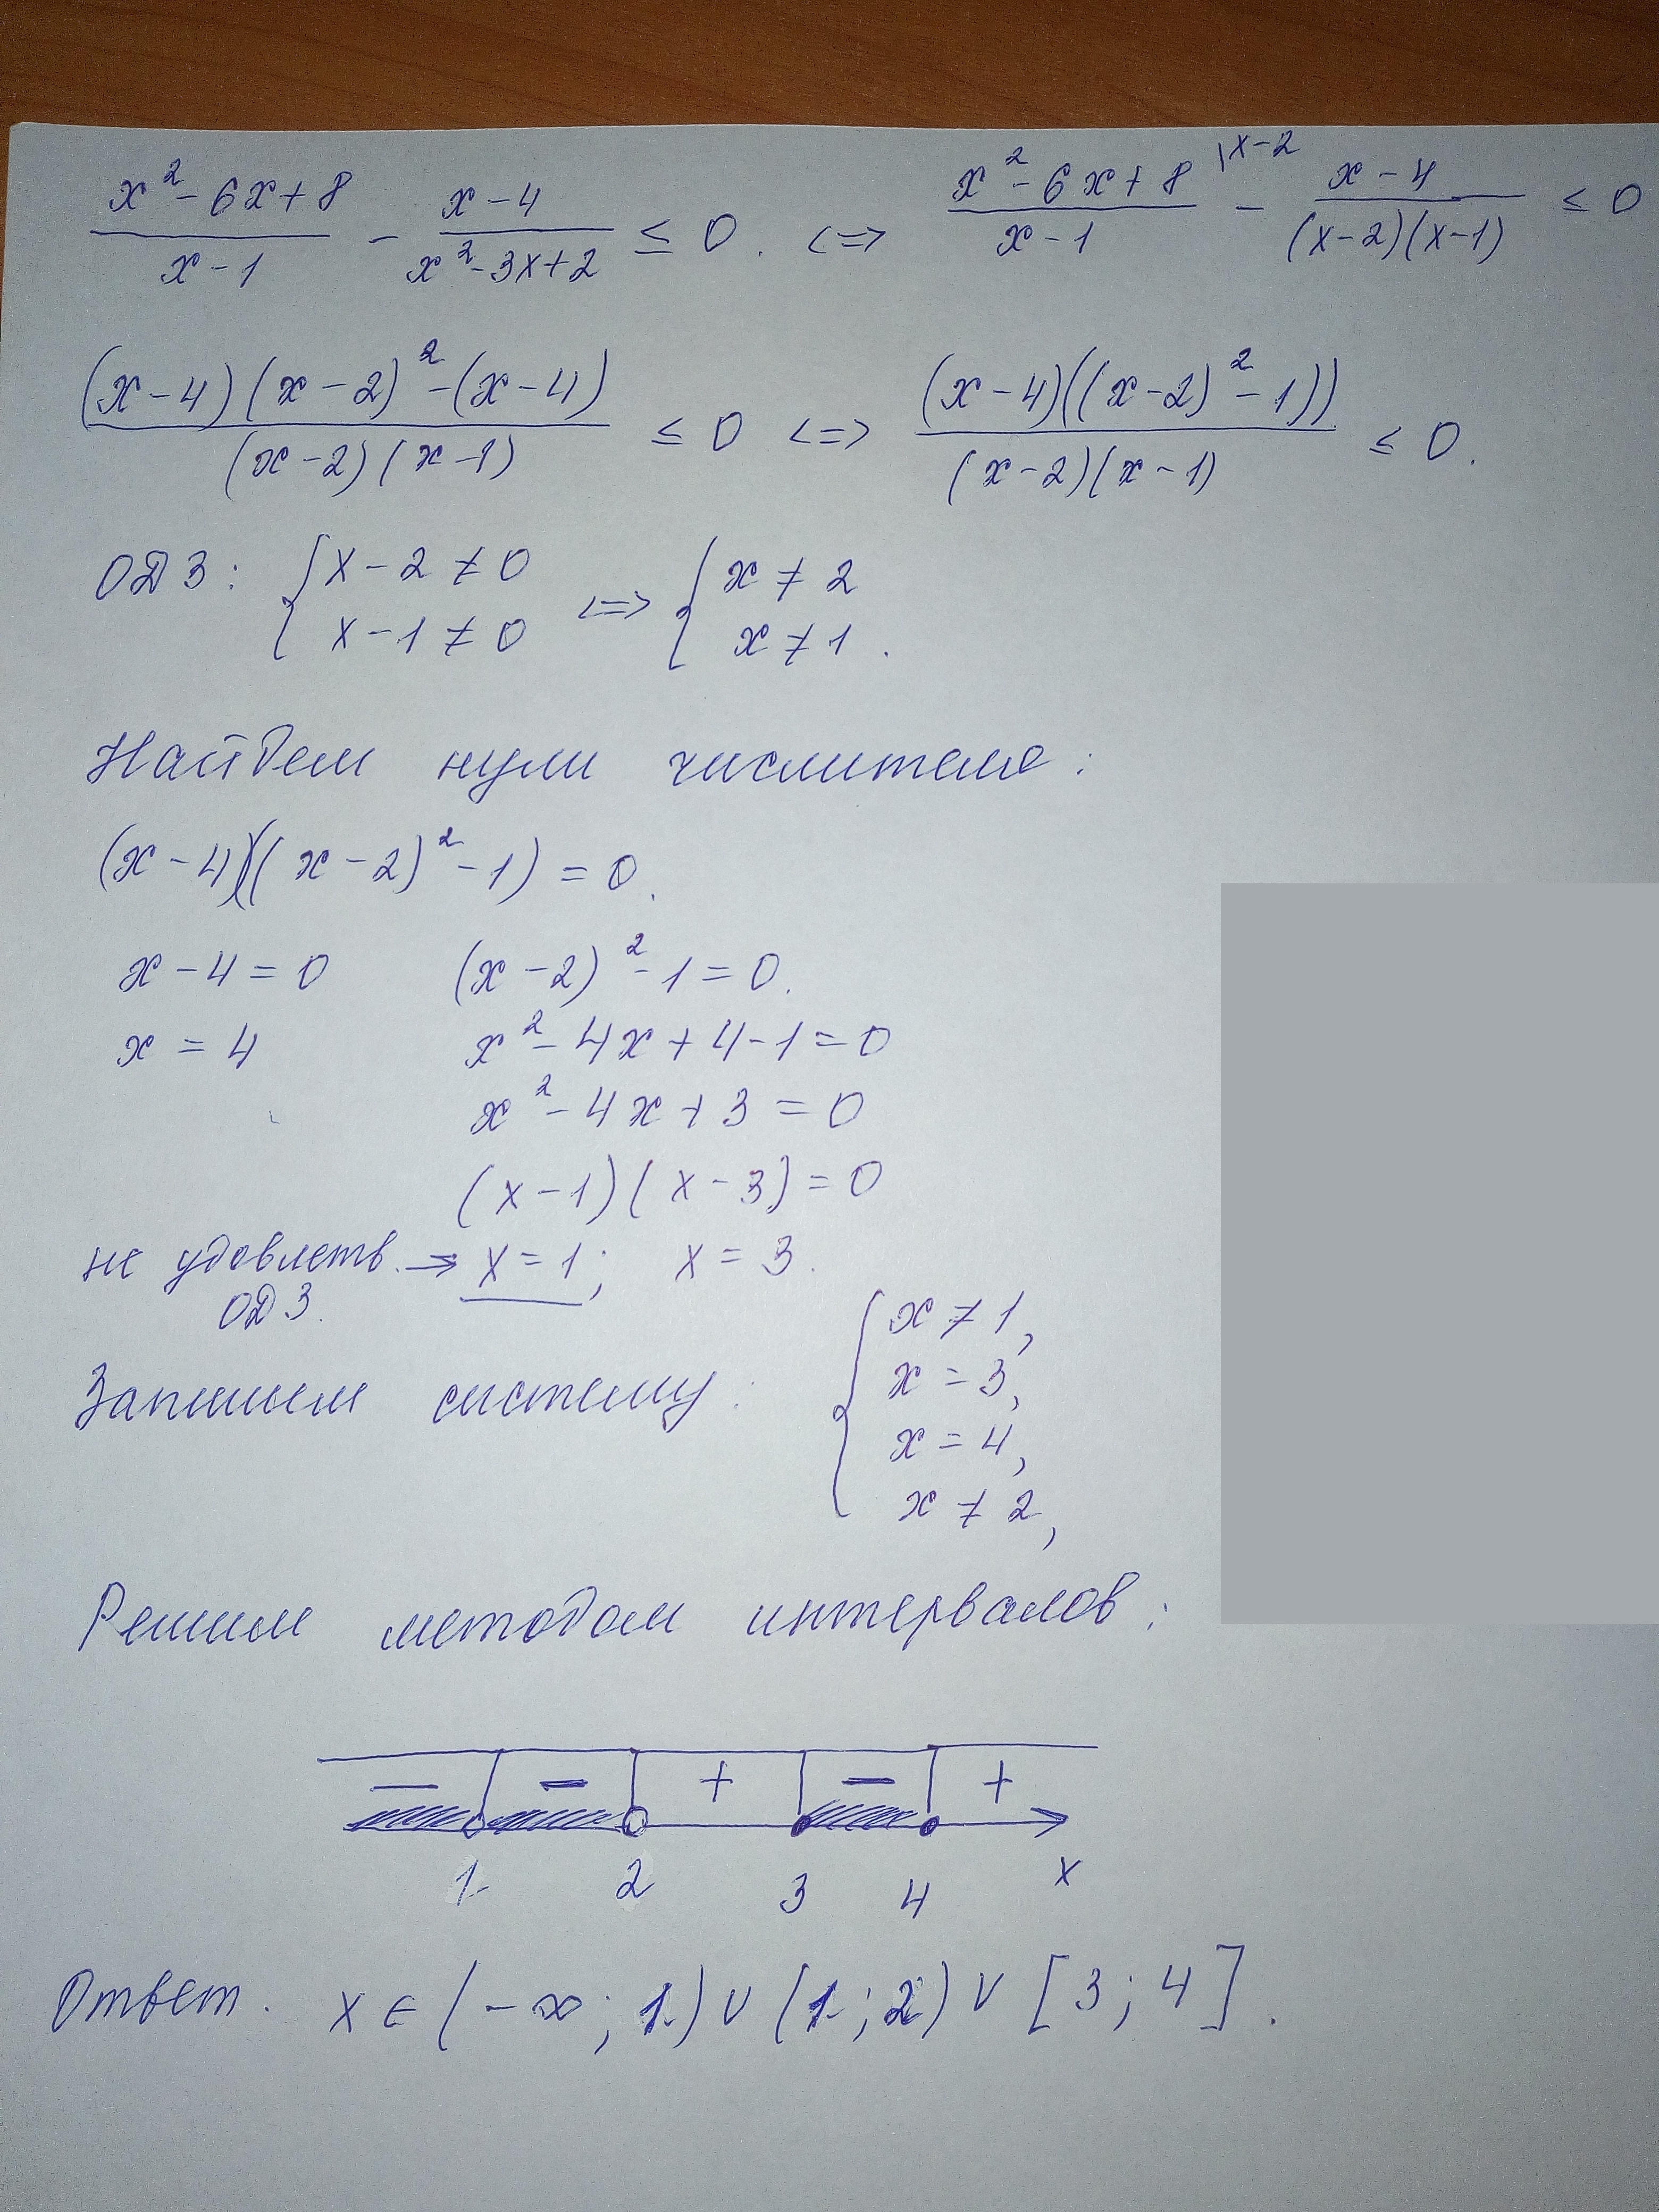 x² - 6x + 8 / x - 1 - x - 4 / x² - 3x + 2 ≤ 0. <=> x² - 6x + 8 \x-2 / x - 1 - x - 4 / (x-2)(x-1) ≤ 0
(x-4)(x-2)² - (x-4) / (x-2)(x-1) ≤ 0 <=> (x-4)((x-2)² - 1)) / (x-2)(x-1) ≤ 0.
ОДЗ: { x - 2 ≠ 0 <=> { x ≠ 2
x - 1 ≠ 0 x ≠ 1.
Найдем нули числителя:
(x-4)((x-2)² - 1) = 0.
x - 4 = 0 (x-2)² - 1 = 0.
x = 4 x² - 4x + 4 - 1 = 0
x² - 4x + 3 = 0
(x-1)(x-3) = 0
не удовлетв. → x = 1; x = 3.
ОДЗ.
Запишем систему: { x ≠ 1,
x = 3,
x = 4,
x ≠ 2,
Решим методом интервалов:
− − + − +
1 2 3 4 x
Ответ. x ∈ (-∞; 1) ∪ (1; 2) ∪ [3; 4].